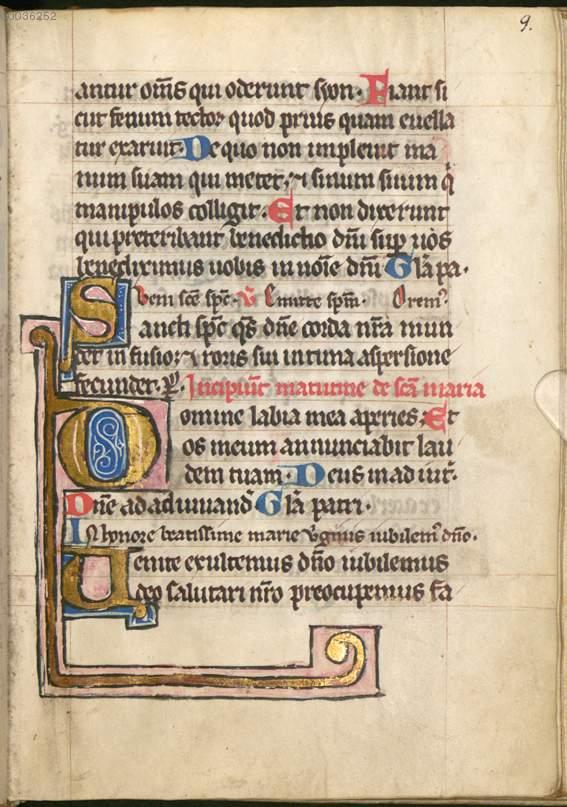 0036252
9.
antur om̅s qui oderunt syon. Fiant si
cut fenum tectoꝝ quod prius quam euella
tur exaruit. De quo non impleuit ma
num suam qui metet, ⁊ sinum suum q̇
manipulos colligit. Et non dixerunt
qui preteribant benedictio dn̅i suꝑ uos
benediximus uobis in noi̅e dn̅i Gl̅a pa.
Veni sce̅ spc̅. V̅. Emitte spm̅. Orem᷒
Sancti spc̅ qs̅ dn̅e corda nr̅a mun
det infusio, ⁊ roris sui intima aspersione
fecundet. ꝑ. Incipiu̅t matutine de sc̅a maria
Domine labia mea aperies, Et
os meum annunciabit lau
dem tuam. Deus in adiut̅.
Dn̅e ad adiuuand̅ Gl̅a patri.
In honore beatissime marie uirginis iubilem᷒ dn̅o.
Uenite exultemus dn̅o iubilemus
deo salutari nr̅o preocupemus fa